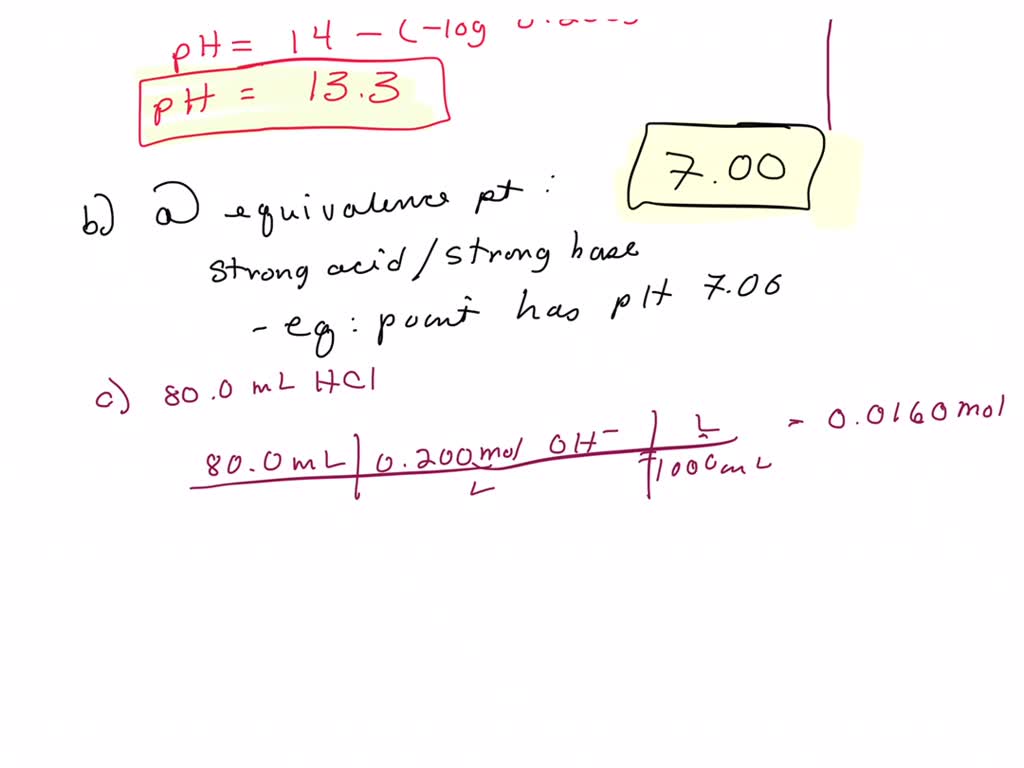 pH = 14 - (-log
pH = 13.3
7.00
b) @ equivalence pt :
strong acid / strong base
- eq : point has pH 7.00
c) 80.0 mL HCl
80.0 mL | 0.200 mol OH⁻ | L = 0.0160 mol
L | 1000 mL